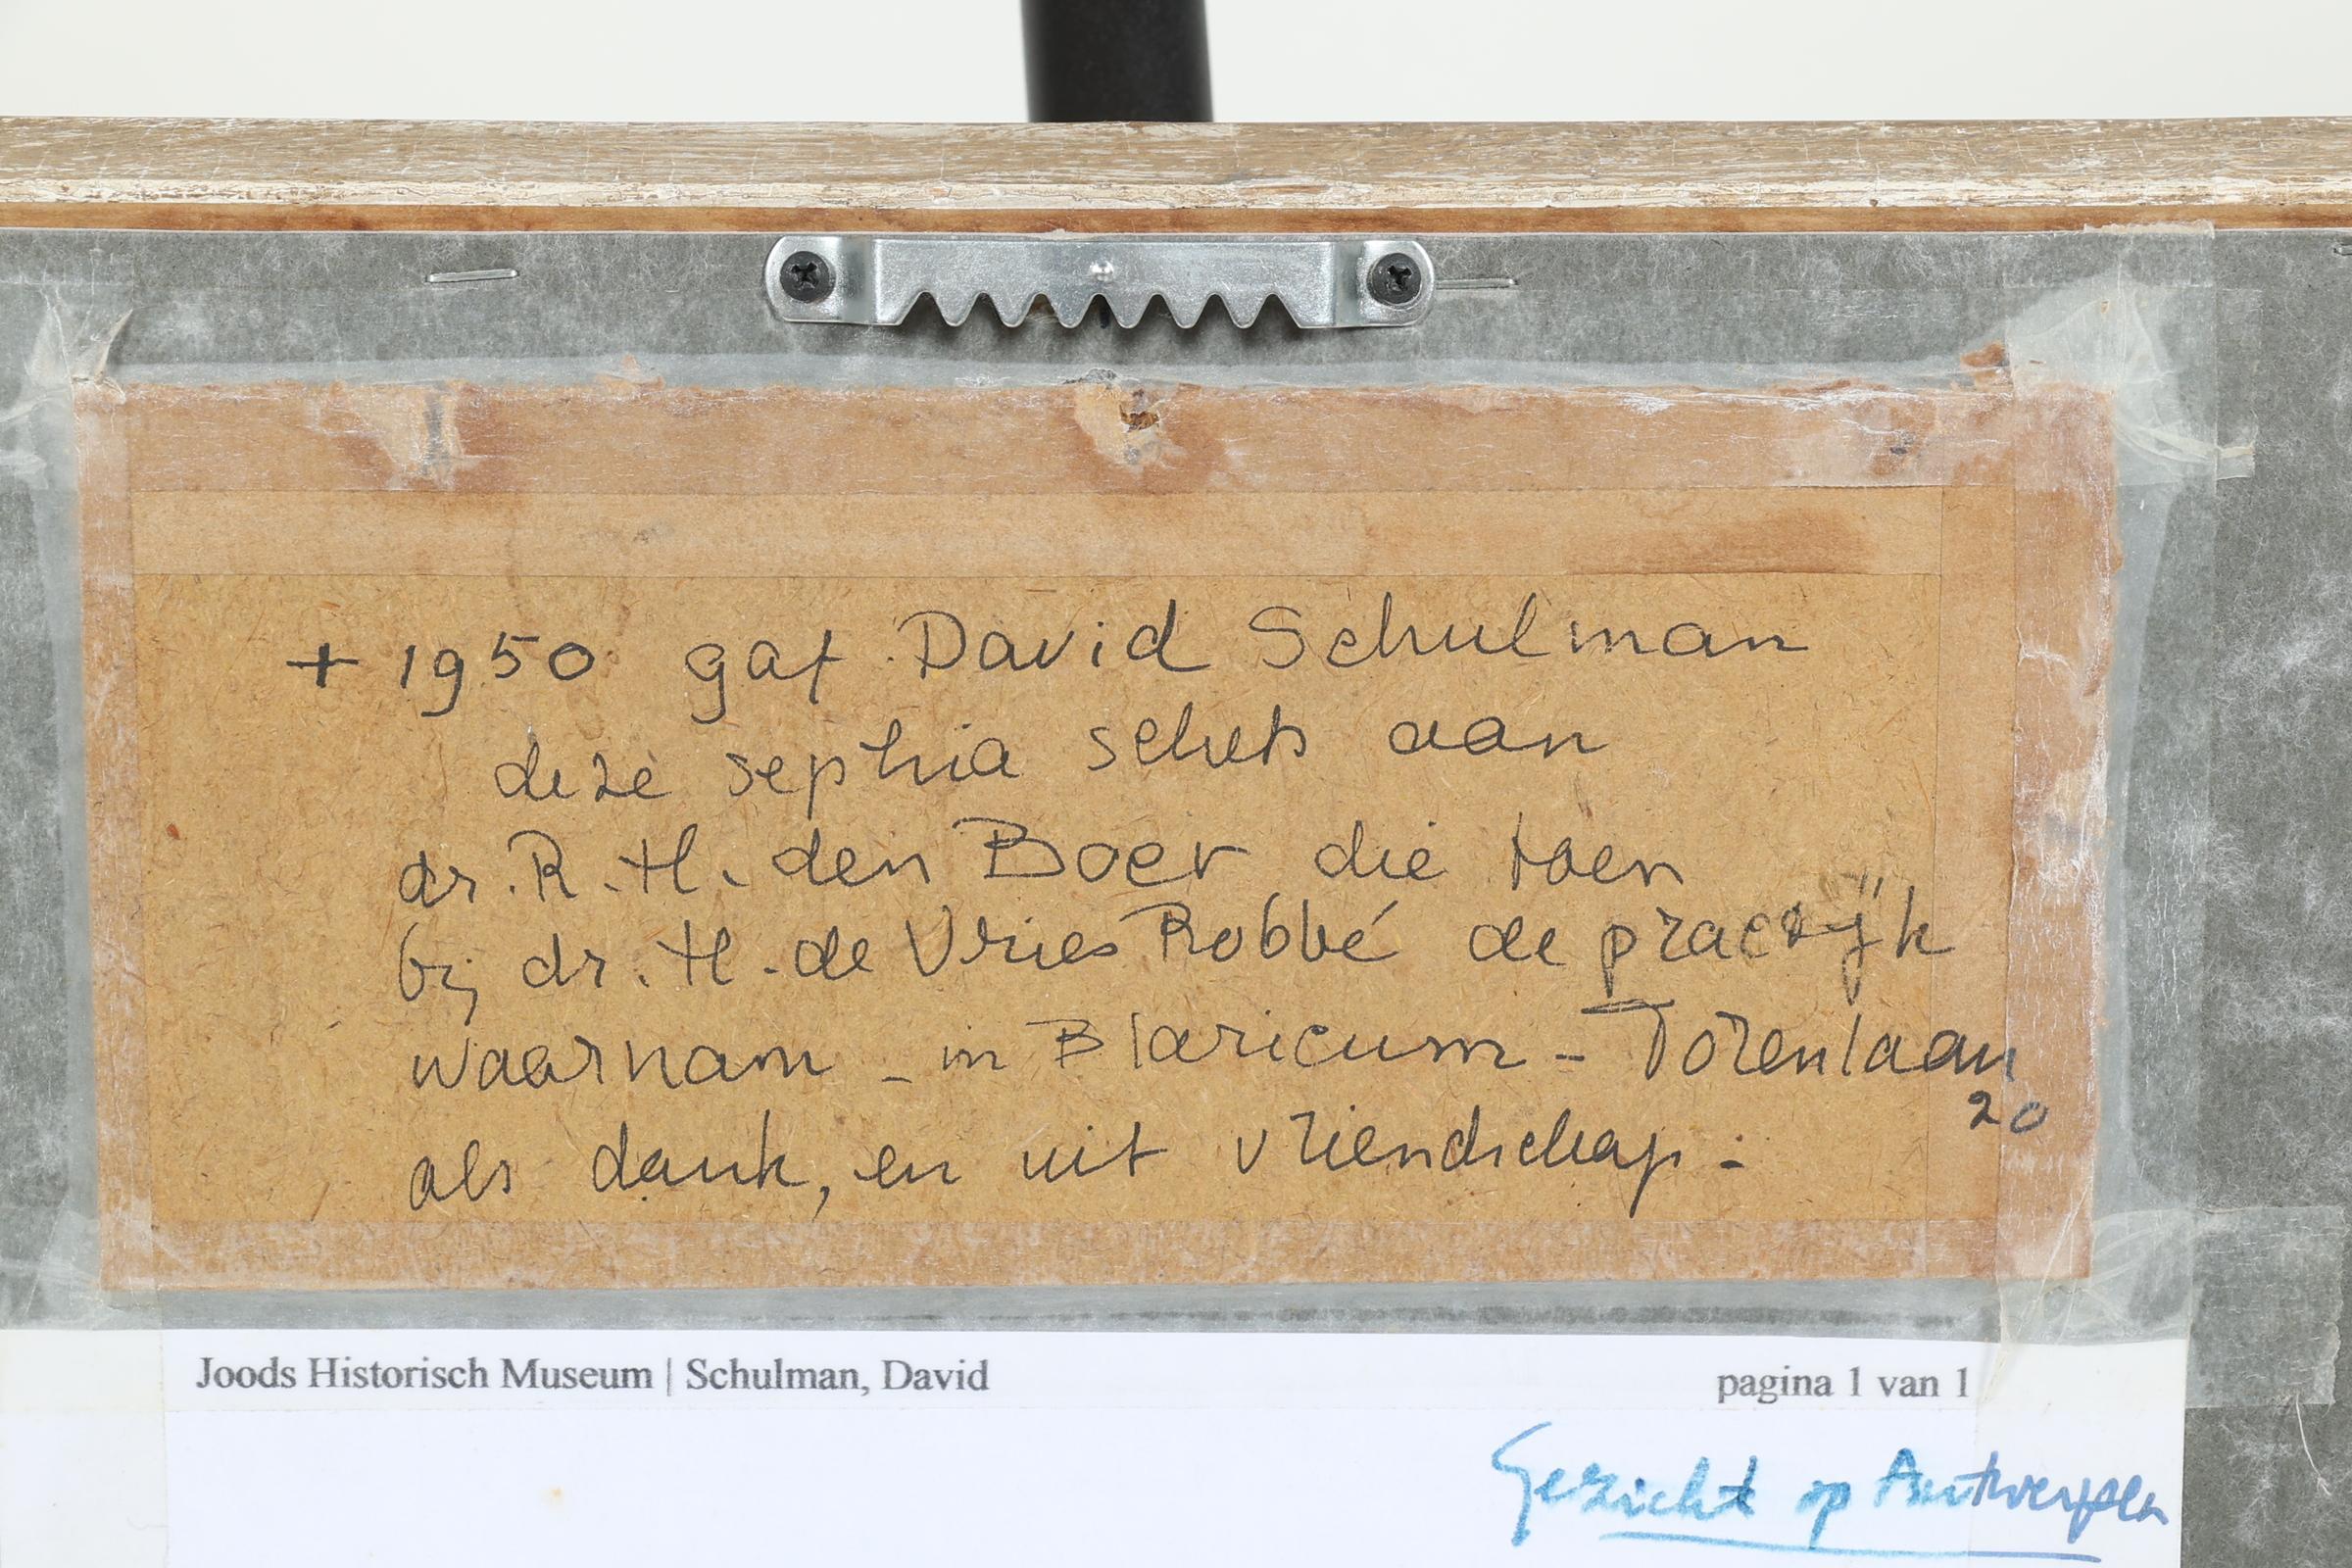 + 1950 gaf David Schulman
deze sephia schets aan
dr. R. H. den Boer die toen
bij dr. H. de Vries Robbé de practijk
waarnam - in Blaricum - Torenlaan
20
als dank, en uit vriendschap :
Joods Historisch Museum | Schulman, David
pagina 1 van 1
Gezicht op Antwerpen